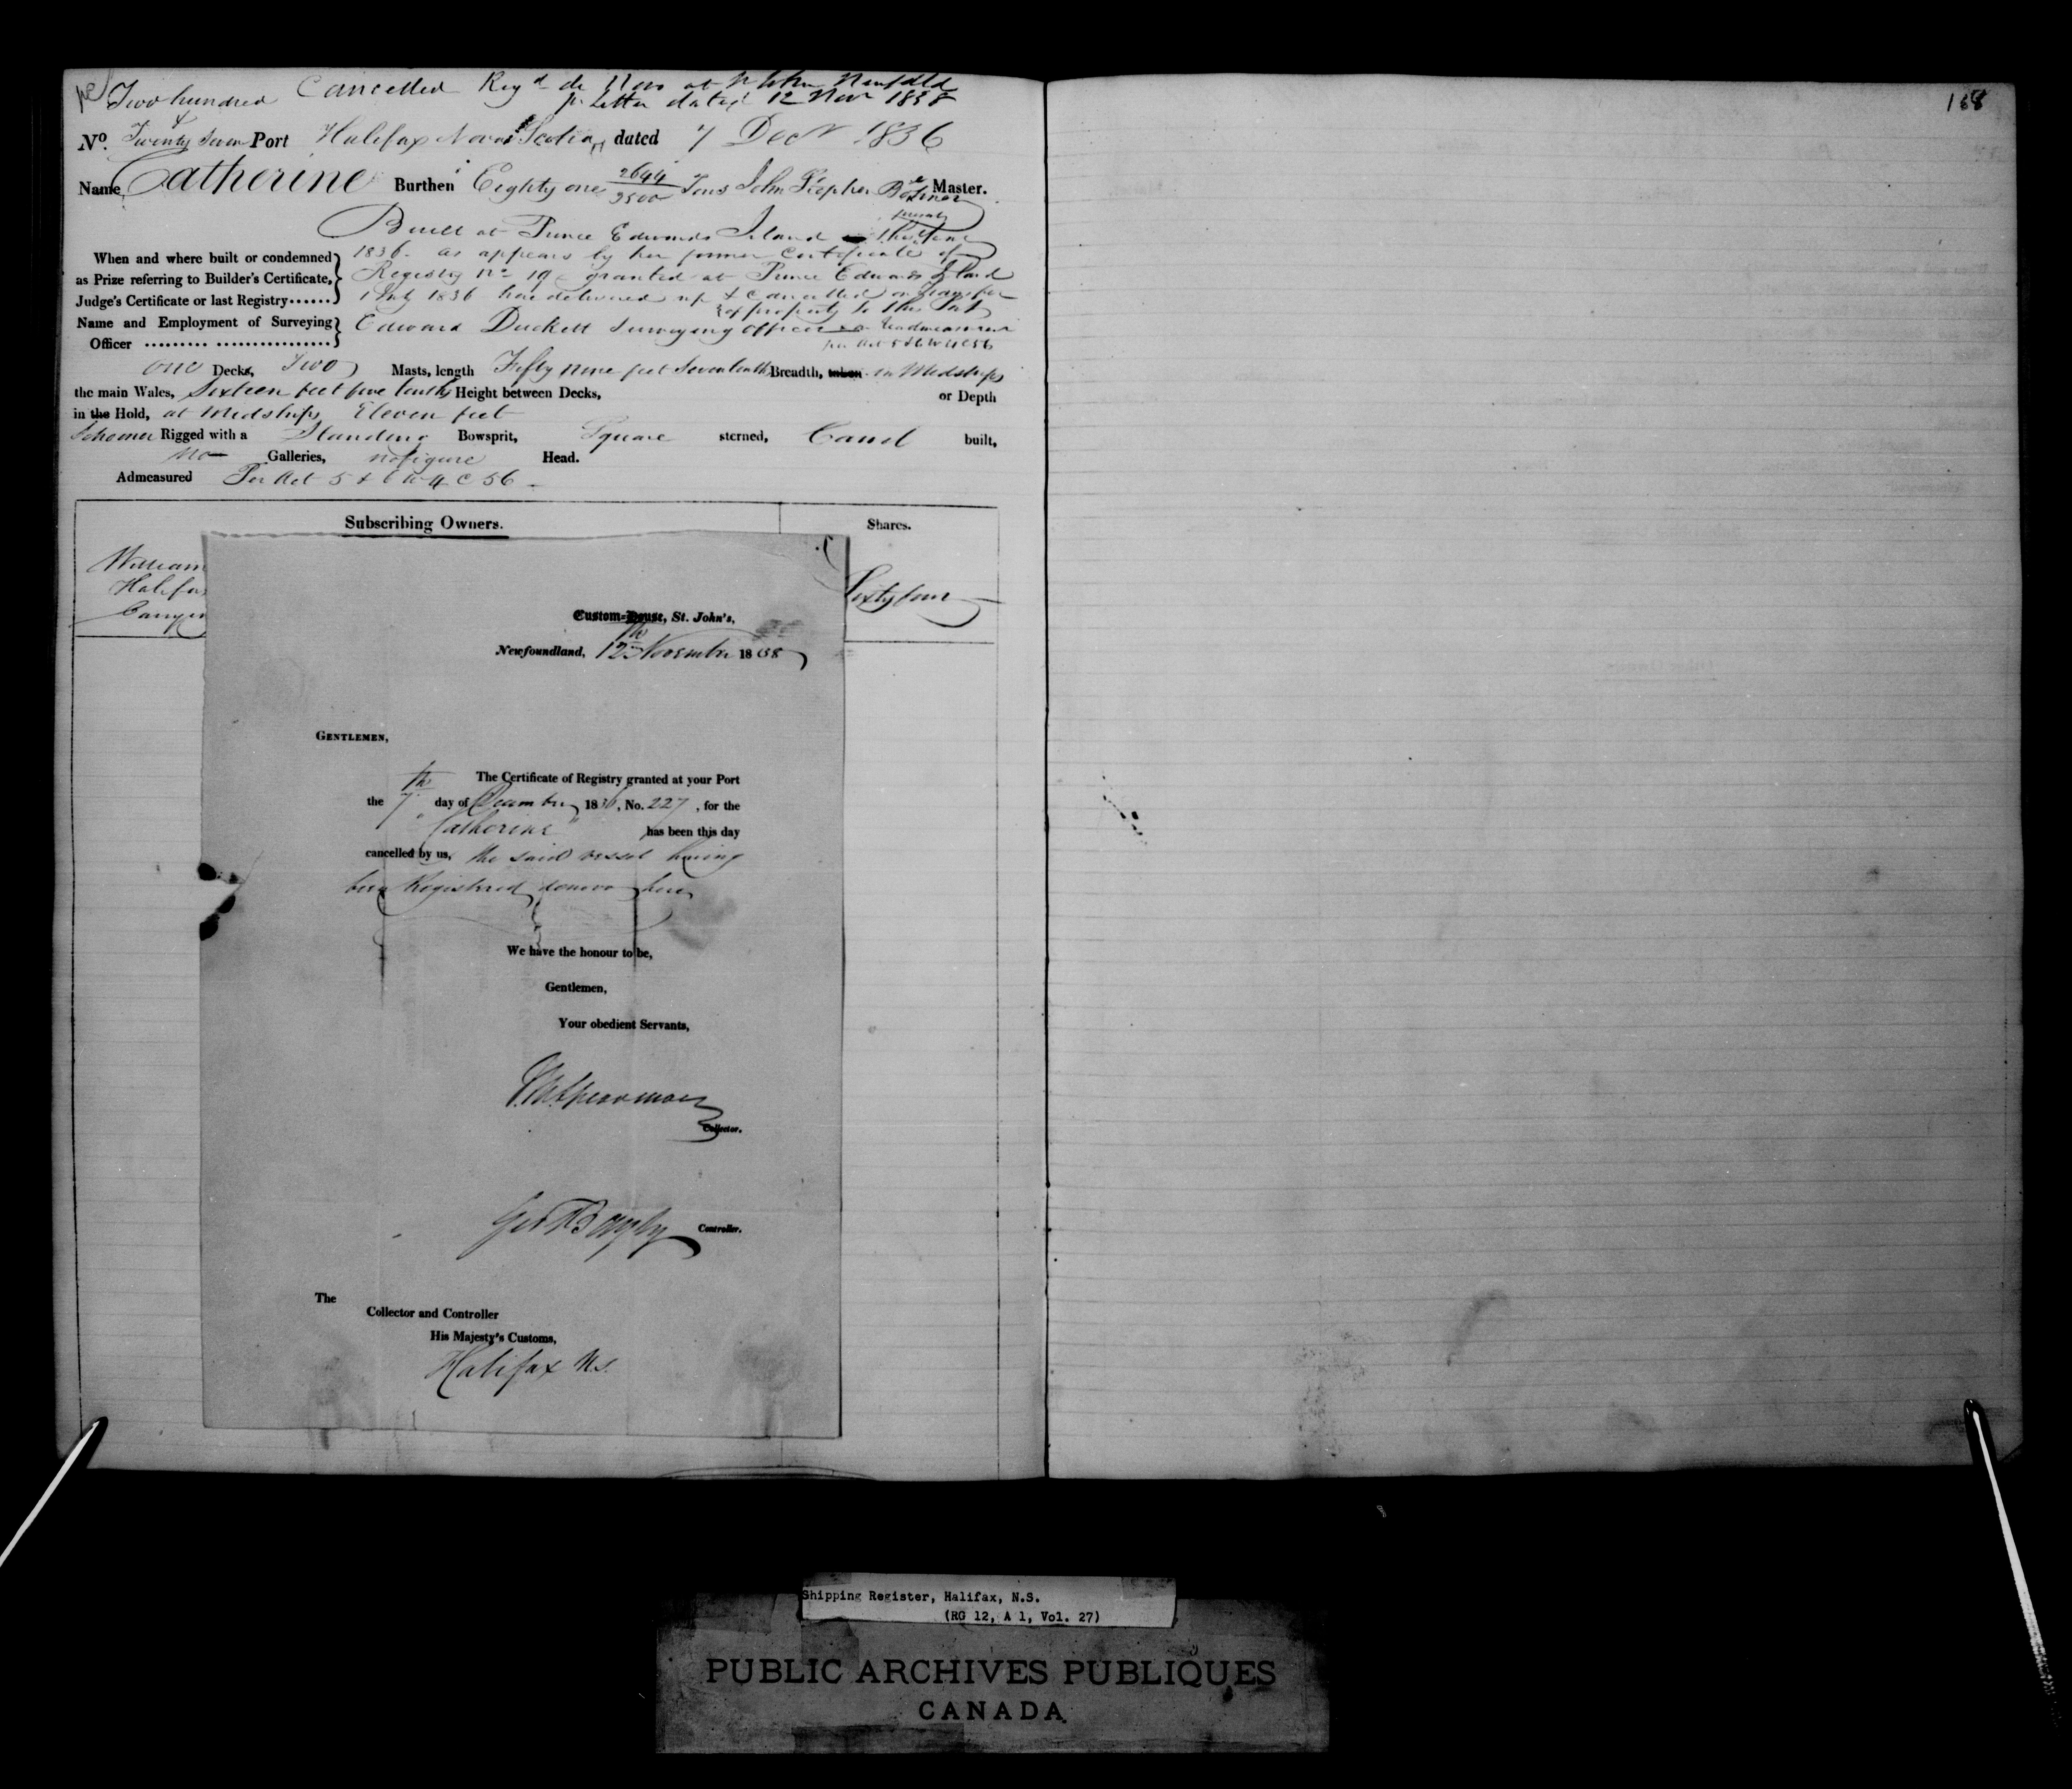 Cancelled Regd de Novo at St Johns Newfdld
pr Letter dated 12 Novr 1838
168
Two hundred
&
No. Twenty Seven Port Halifax Nova Scotia dated 7 Decr 1836
Name Catherine Burthen Eighty one 2644/3500 Tons John Master.
Built at Prince Edwards Island
When and where built or condemned 1836 - as appears by her former Certificate of
as Prize referring to Builder's Certificate, Registry No 19 granted at Prince Edwards Island
Judge's Certificate or last Registry...... 1836 here delivered up & Cancelled on transfer
of property to this Port
Name and Employment of Surveying Edward Duckett Surveying Officer
Officer pr Act 5 & 6 W 4 C 56
one Decks, Two Masts, length Fifty nine feet Seven tenths Breadth, taken in Midships
the main Wales, Sixteen feet five tenths Height between Decks, or Depth
in the Hold, at Midships Eleven feet
Schooner Rigged with a Standing Bowsprit, Square sterned, Carvel built,
No Galleries, no figure Head.
Admeasured Per Act 5 & 6 W 4 C 56
Subscribing Owners. Shares.
William
Halifax
Sixty four
Custom-House, St. John's,
Newfoundland, 12th November 1838
GENTLEMEN,
The Certificate of Registry granted at your Port
the 7th day of December 1836, No. 227, for the
"Catherine" has been this day
cancelled by us, the said vessel having
been Registered denovo here
We have the honour to be,
Gentlemen,
Your obedient Servants,
Spearman
Collector.
Controller.
The
Collector and Controller
His Majesty's Customs,
Halifax N.S.
Shipping Register, Halifax, N.S.
(RG 12, A 1, Vol. 27)
PUBLIC ARCHIVES PUBLIQUES
CANADA